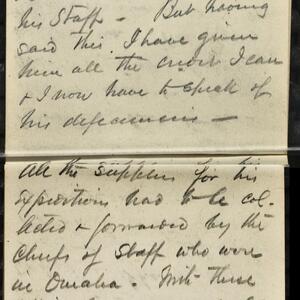 his Staff — But having
said this, I have given
him all the credit I can
& I now have to speak of
his deficiencies —
All the supplies for his
expeditions had to be col-
lected & forwarded by the
Chiefs of Staff who were
in Omaha. With these